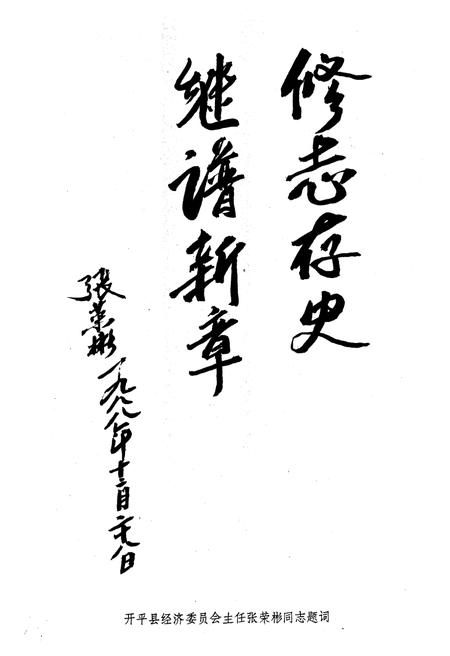 修志存史
继谱新章
張荣彬
一九八八年十二月二十八日
开平县经济委员会主任张荣彬同志题词